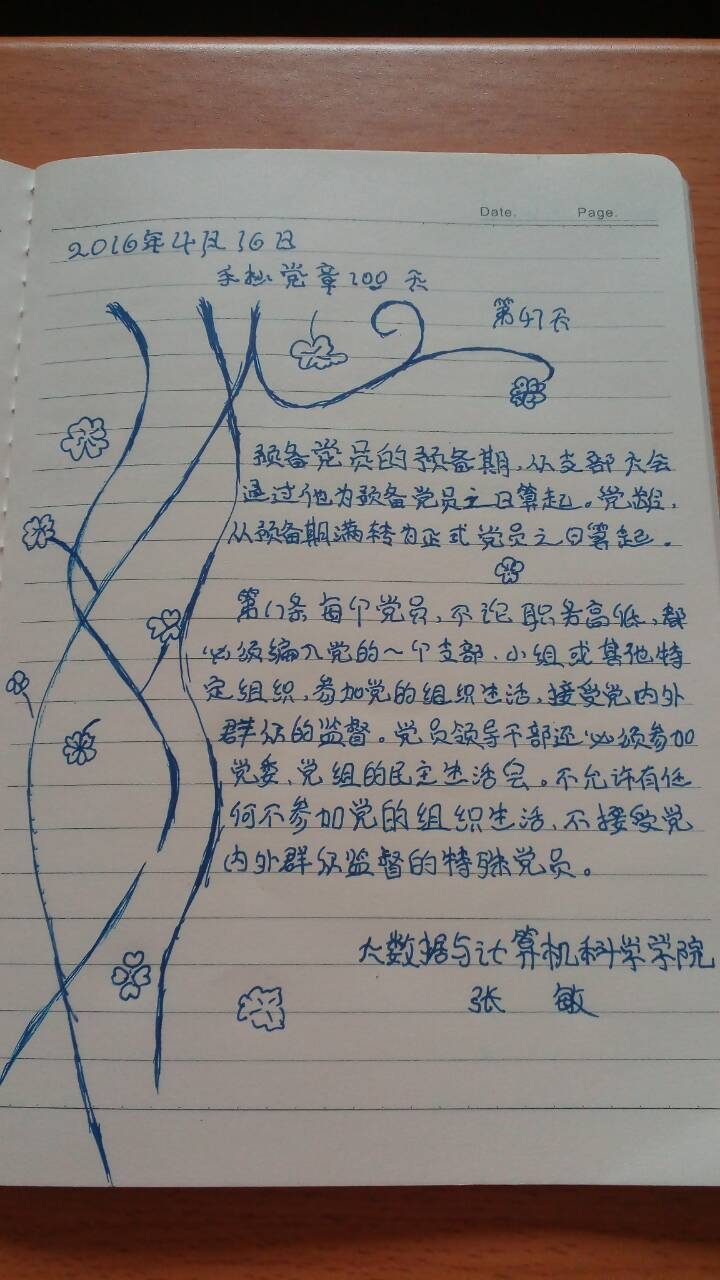 Date. Page.
2016年4月16日
手抄党章100天
第47天
预备党员的预备期,从支部大会
通过他为预备党员之日算起。党龄,
从预备期满转为正式党员之日算起。
第八条每个党员,不论职务高低,都
必须编入党的一个支部、小组或其他特
定组织,参加党的组织生活,接受党内外
群众的监督。党员领导干部还必须参加
党委、党组的民主生活会。不允许有任
何不参加党的组织生活、不接受党
内外群众监督的特殊党员。
大数据与计算机科学学院
张 敏